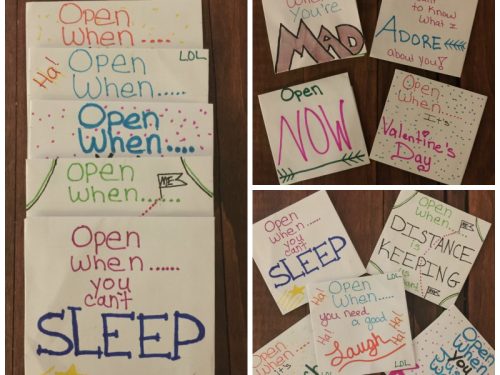 Open
When.....
Ha!
LOL
Open
When.....
Open
When....
Open
When......
ME
Open
When......
you
can't
SLEEP
When
you're
MAD
to know
what I
ADORE
about you!
Open
NOW
Open
When....
It's
Valentine's
Day
Open
When......
you
can't
SLEEP
Open
When...
DISTANCE
is
KEEPING
Ha!
Ha!
Open
When.....
you need
a good
Laugh
Ha!
Ha!
LOL
Open
When...
It's
Open
When
you